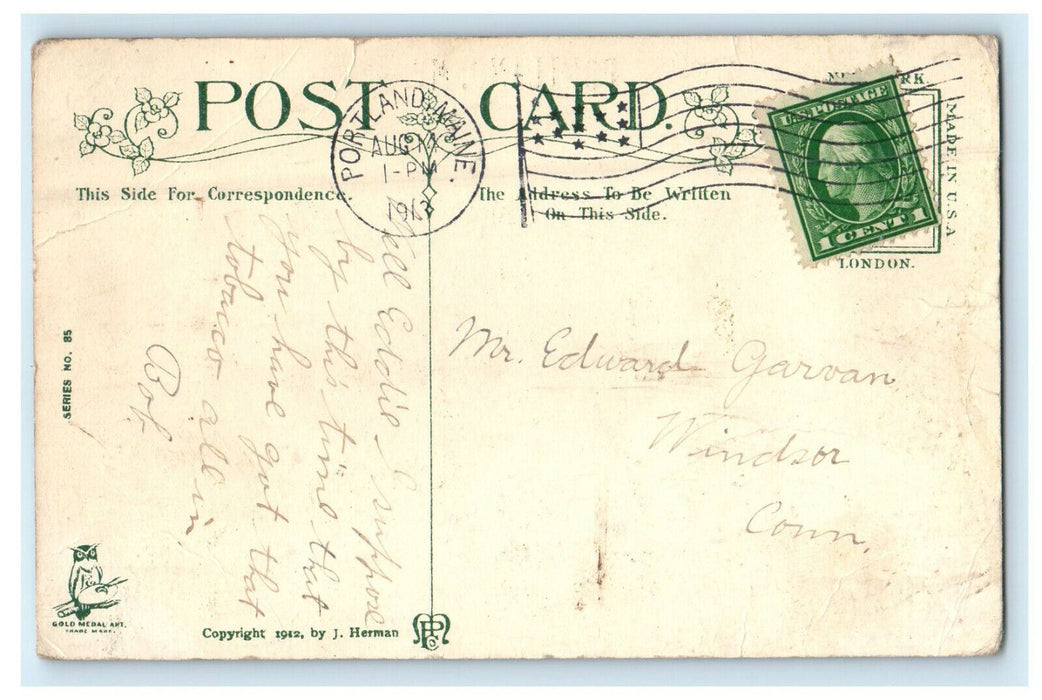 POST CARD.
PORTLAND, MAINE.
AUG
1-PM
191
U.S. POSTAGE
1 CENT 1
NEW YORK
MADE IN U.S.A
LONDON.
This Side For Correspondence.
The Address To Be Written
On This Side.
Well Eddie I suppose
by this time that
you have got that
tobacco all in
Bob.
Mr. Edward Garvan
Windsor
Conn.
SERIES NO. 85
GOLD MEDAL ART.
TRADE MARK.
Copyright 1912, by J. Herman